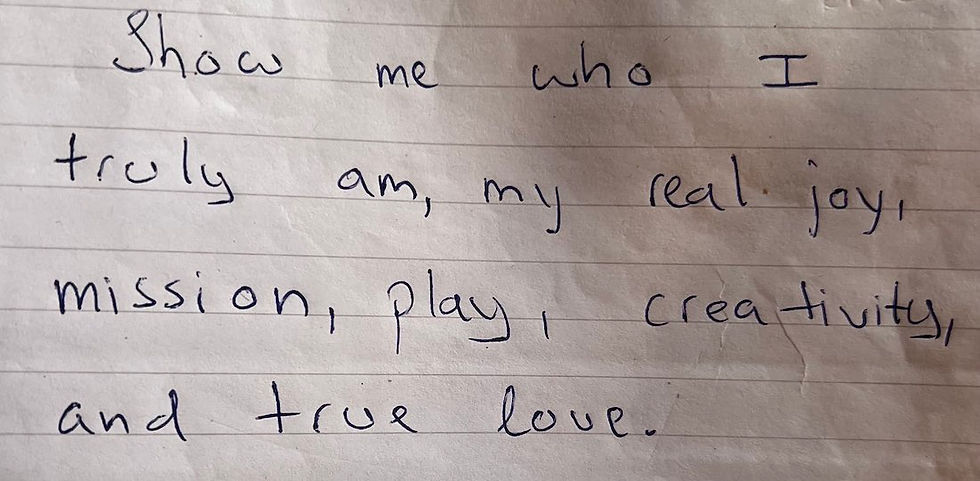 Show me who I
truly am, my real joy,
mission, play, creativity,
and true love.